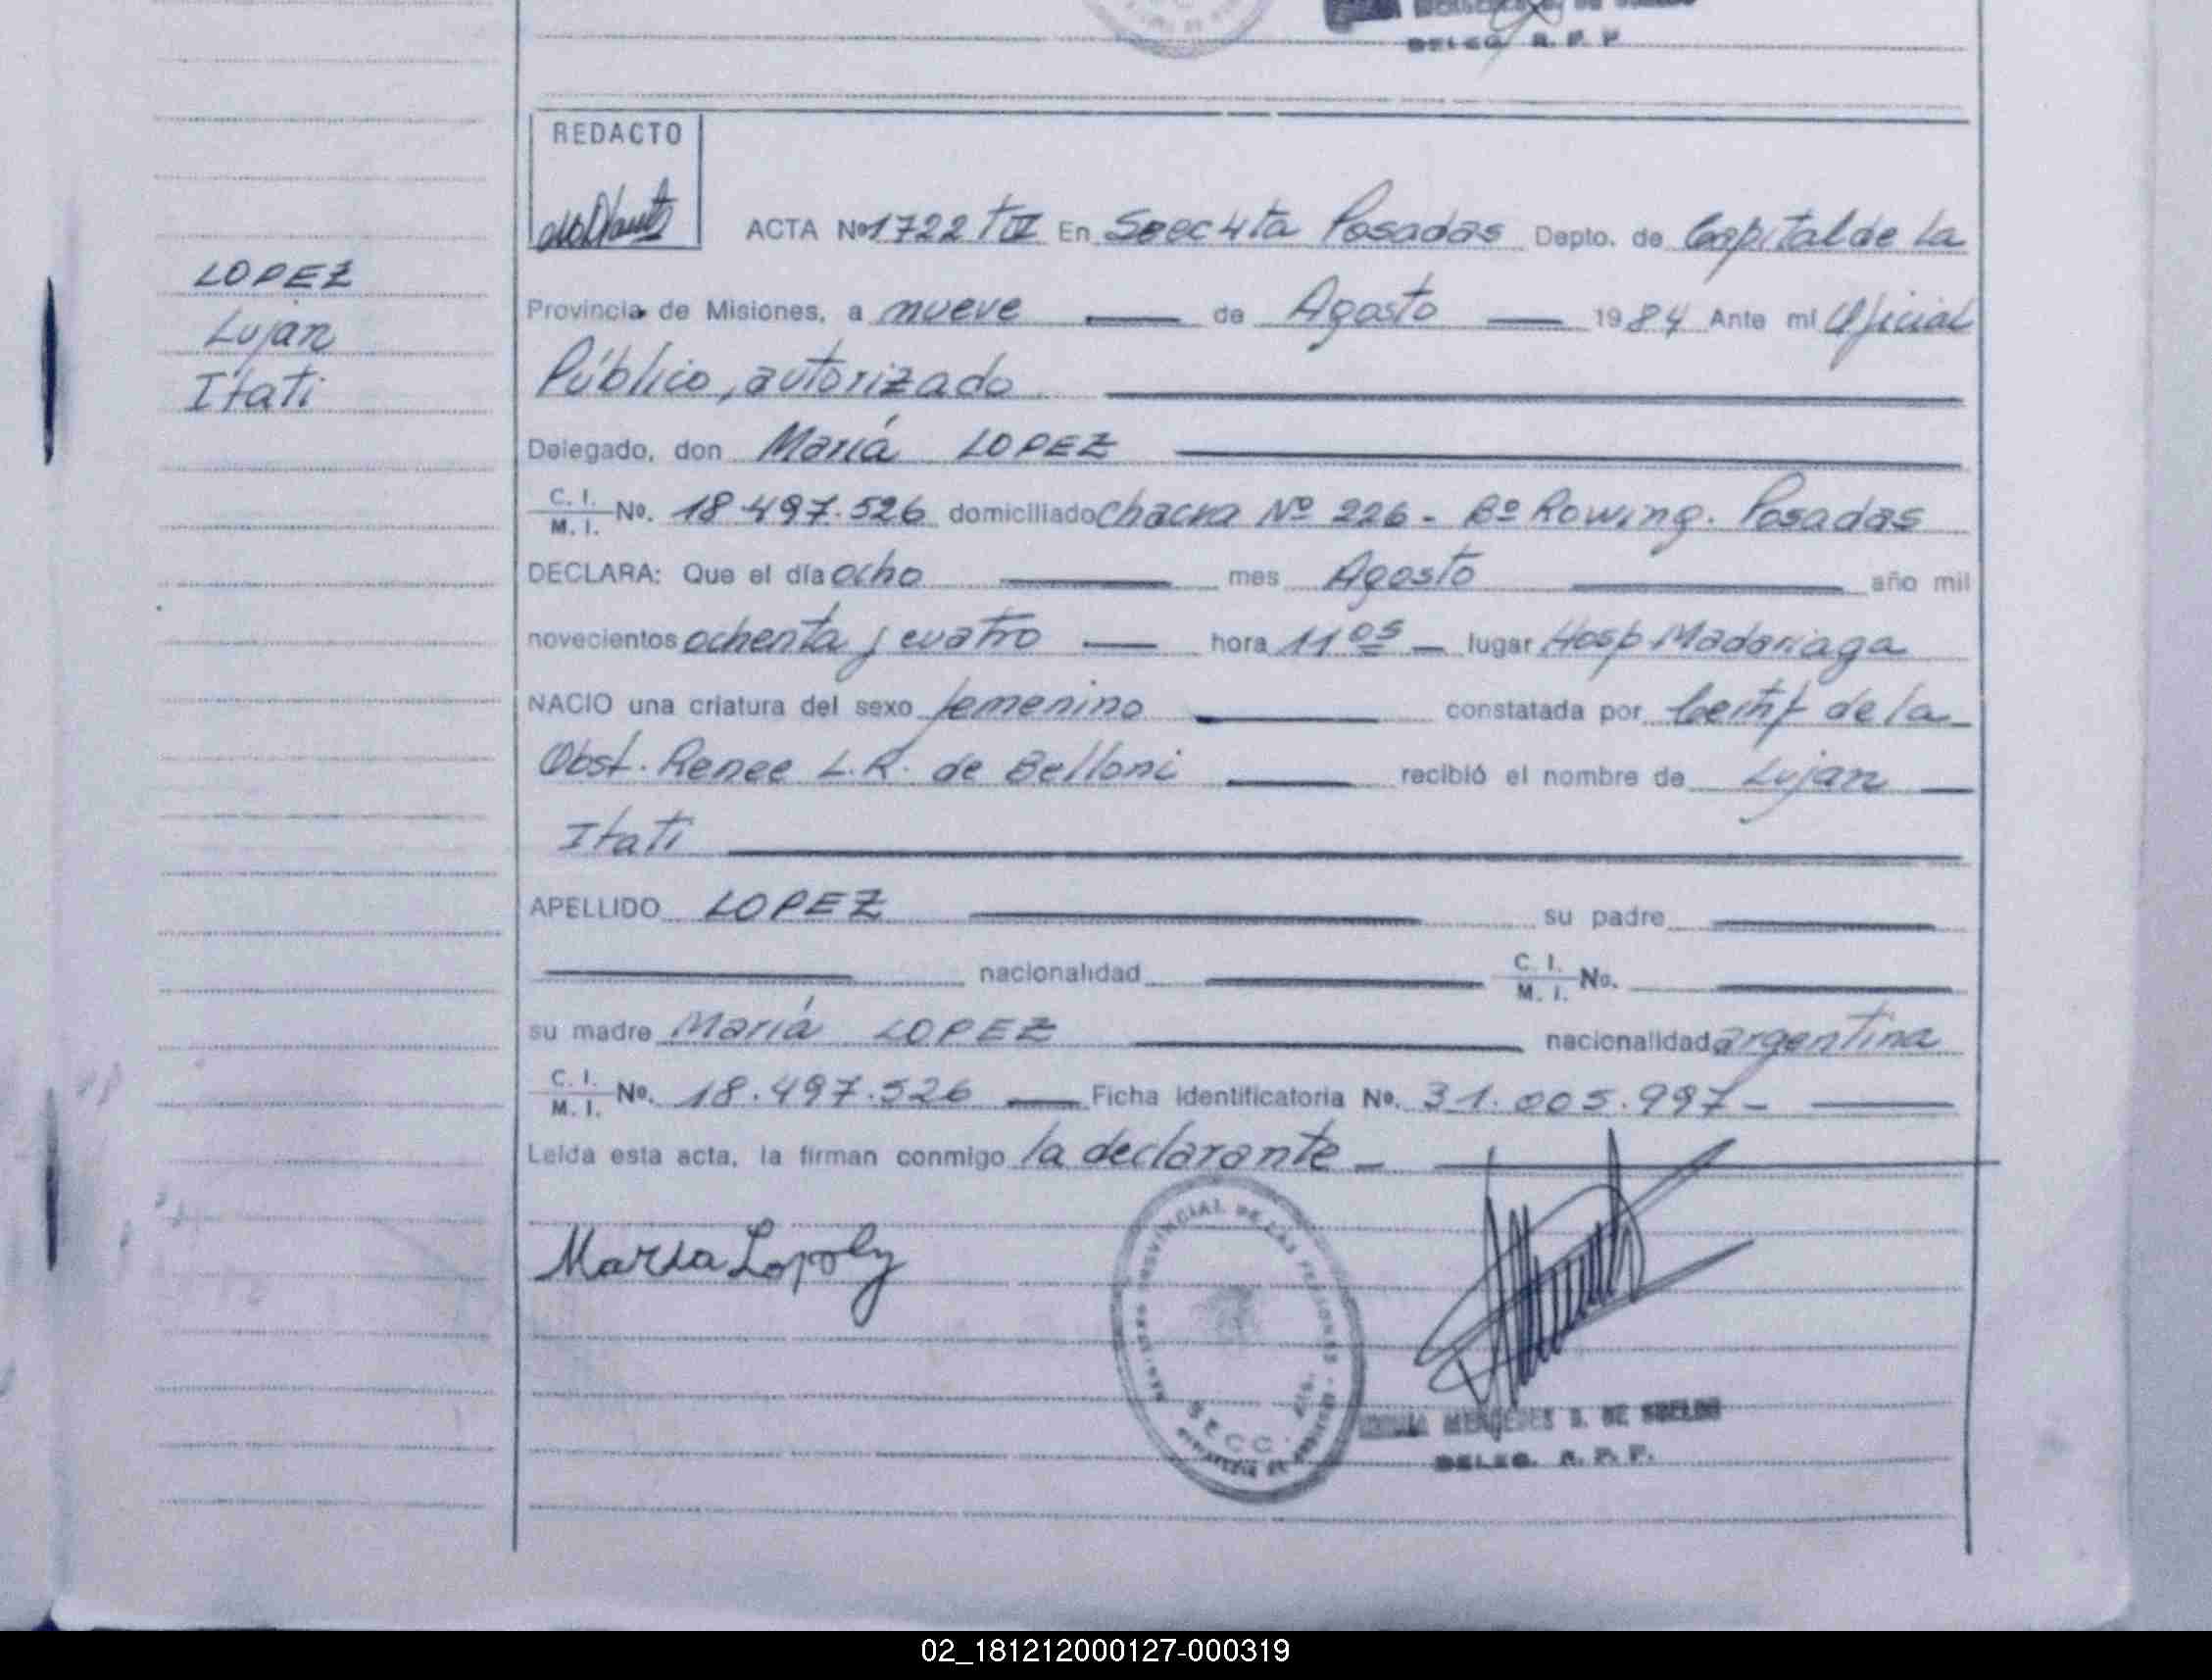 DELEG. R. P. P.
REDACTO
ACTA Nº 1722 TIV En Secc 4ta Posadas Depto. de Capital de la
LOPEZ
Lujan
Itati
Provincia de Misiones, a nueve — de Agosto — 1984 Ante mi Oficial
Público, autorizado
Delegado, don María LOPEZ
C. I. / M. I. No. 18.497.526 domiciliado chacra Nº 226 - Bº Rowing. Posadas
DECLARA: Que el día ocho mes Agosto año mil
novecientos ochenta y cuatro — hora 11 05 — lugar Hosp Madariaga
NACIO una criatura del sexo femenino constatada por Certif de la
Obst. Renee L.R. de Belloni recibió el nombre de Lujan
Itati
APELLIDO LOPEZ su padre
nacionalidad C. I. / M. I. No.
su madre María LOPEZ nacionalidad argentina
C. I. / M. I. No. 18.497.526 — Ficha identificatoria No. 31.005.997 -
Leída esta acta, la firman conmigo la declarante -
PROVINCIAL DE LAS PERSONAS
SECC.
MERCEDES S. DE
DELEG. R. P. P.
02_181212000127-000319